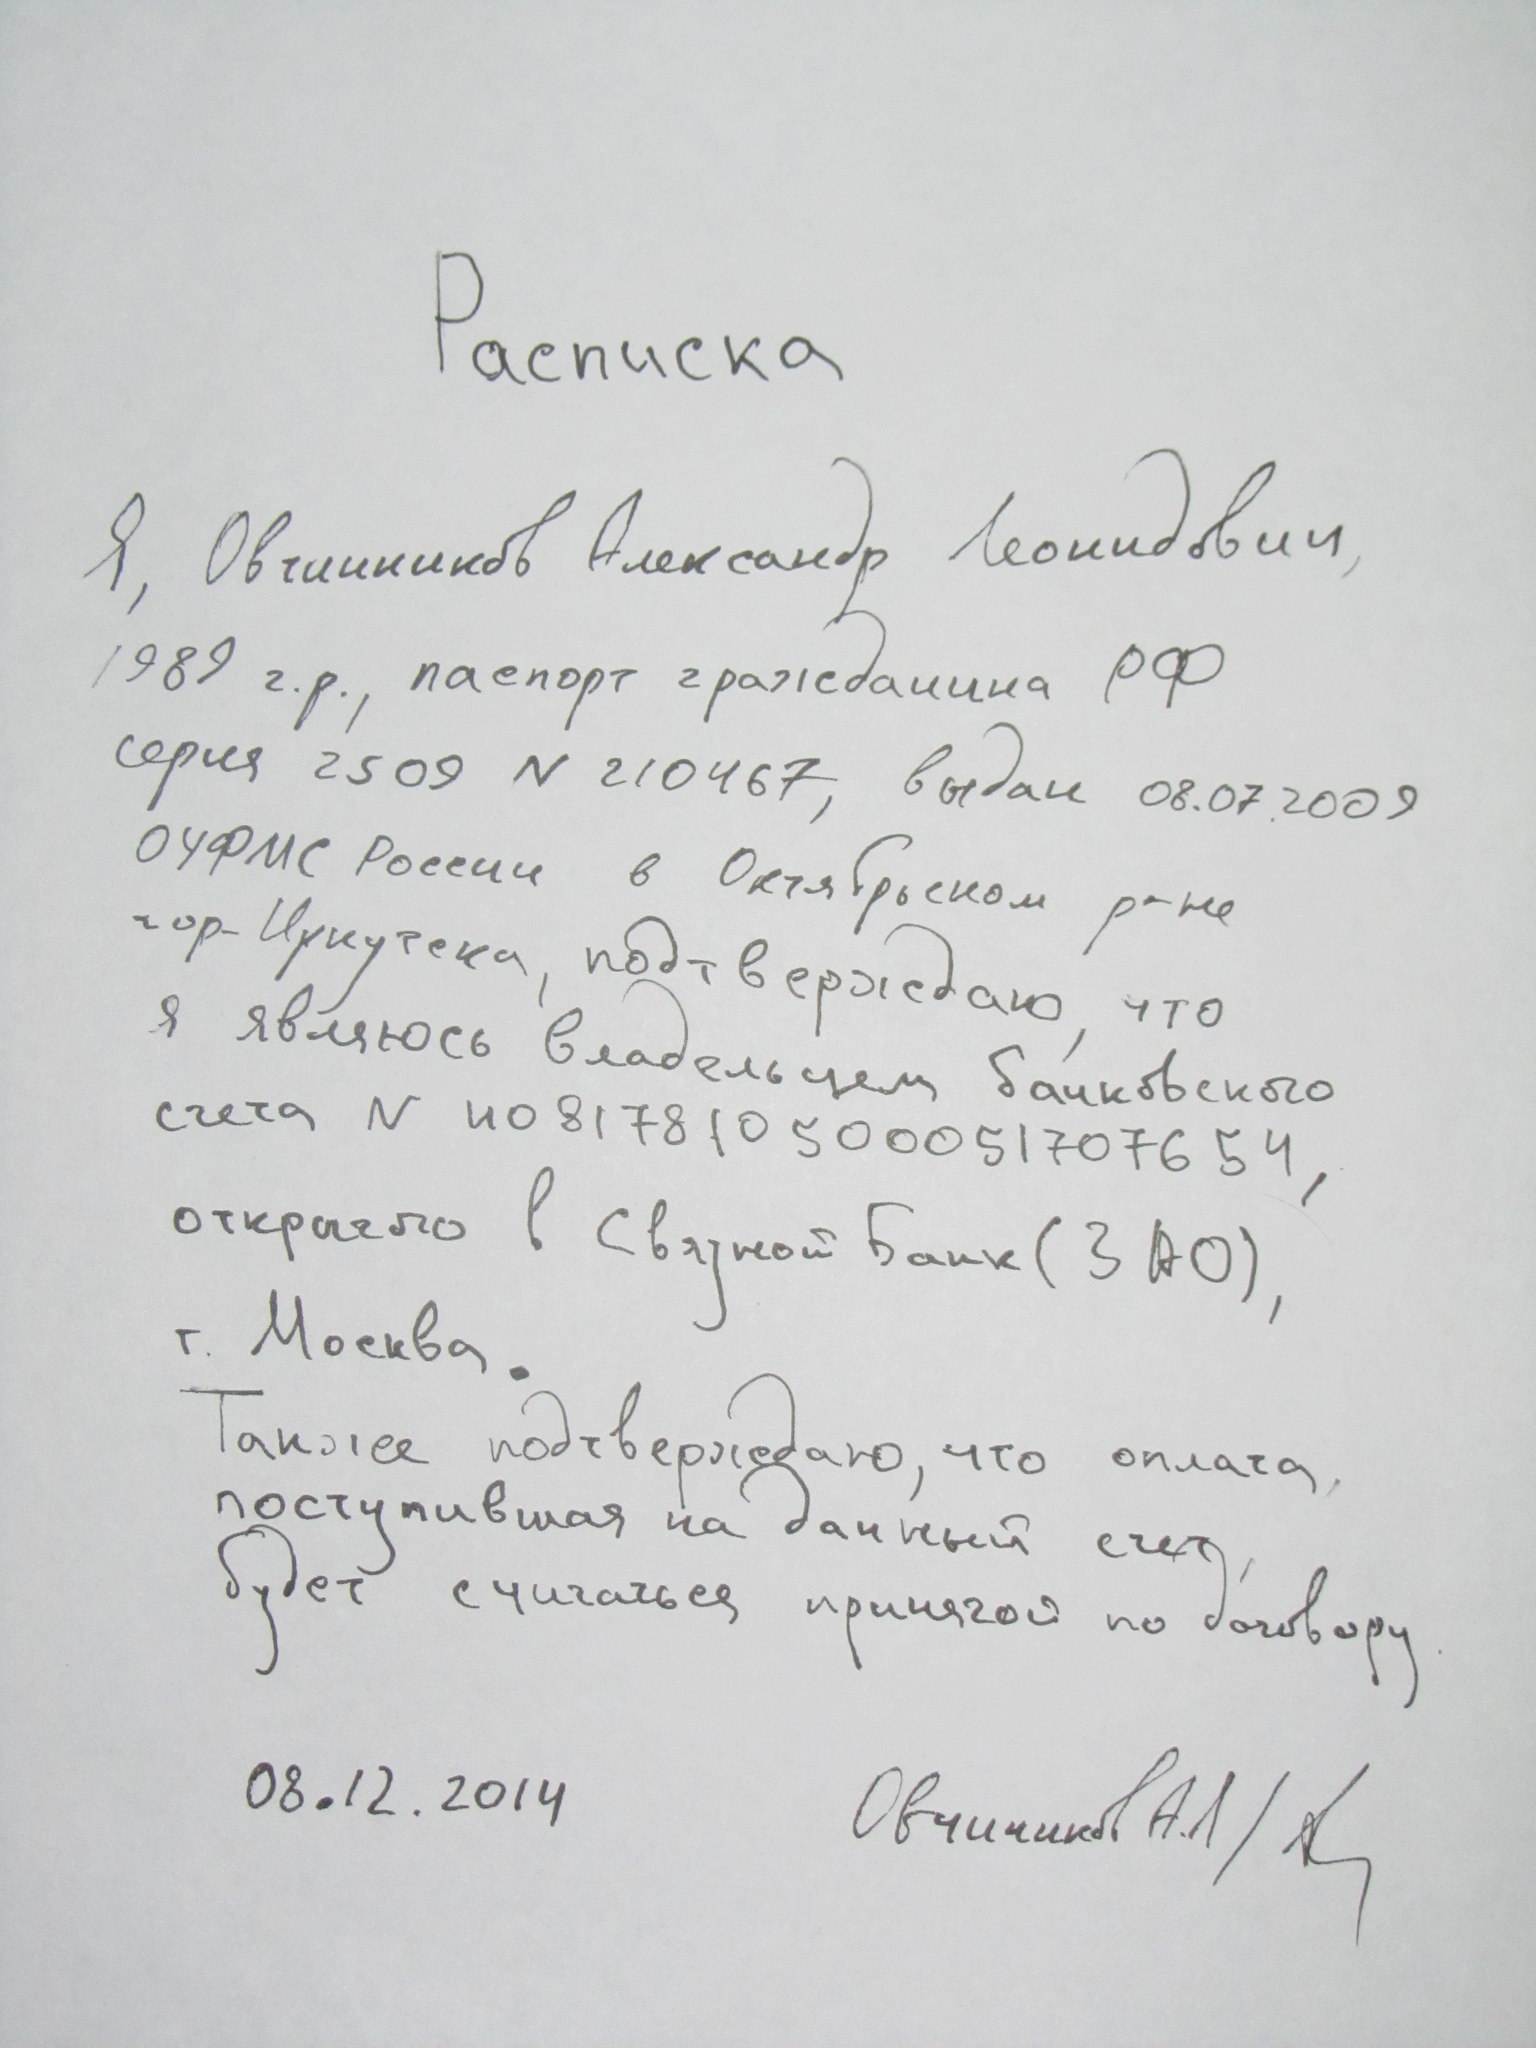 Расписка
Я, Овчинников Александр Леонидович,
1989 г.р., паспорт гражданина РФ
серия 2509 N 210467, выдан 08.07.2009
ОУФМС России в Октябрьском р-не
гор. Иркутска, подтверждаю, что
я являюсь владельцем банковского
счета N 40817810500051707654,
открытого в Связной Банк (ЗАО),
г. Москва.
Также подтверждаю, что оплата,
поступившая на данный счет,
будет считаться принятой по договору.
08.12.2014 Овчинников А.Л /